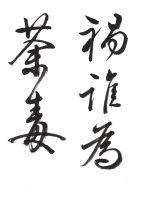 禍誰為
荼毒